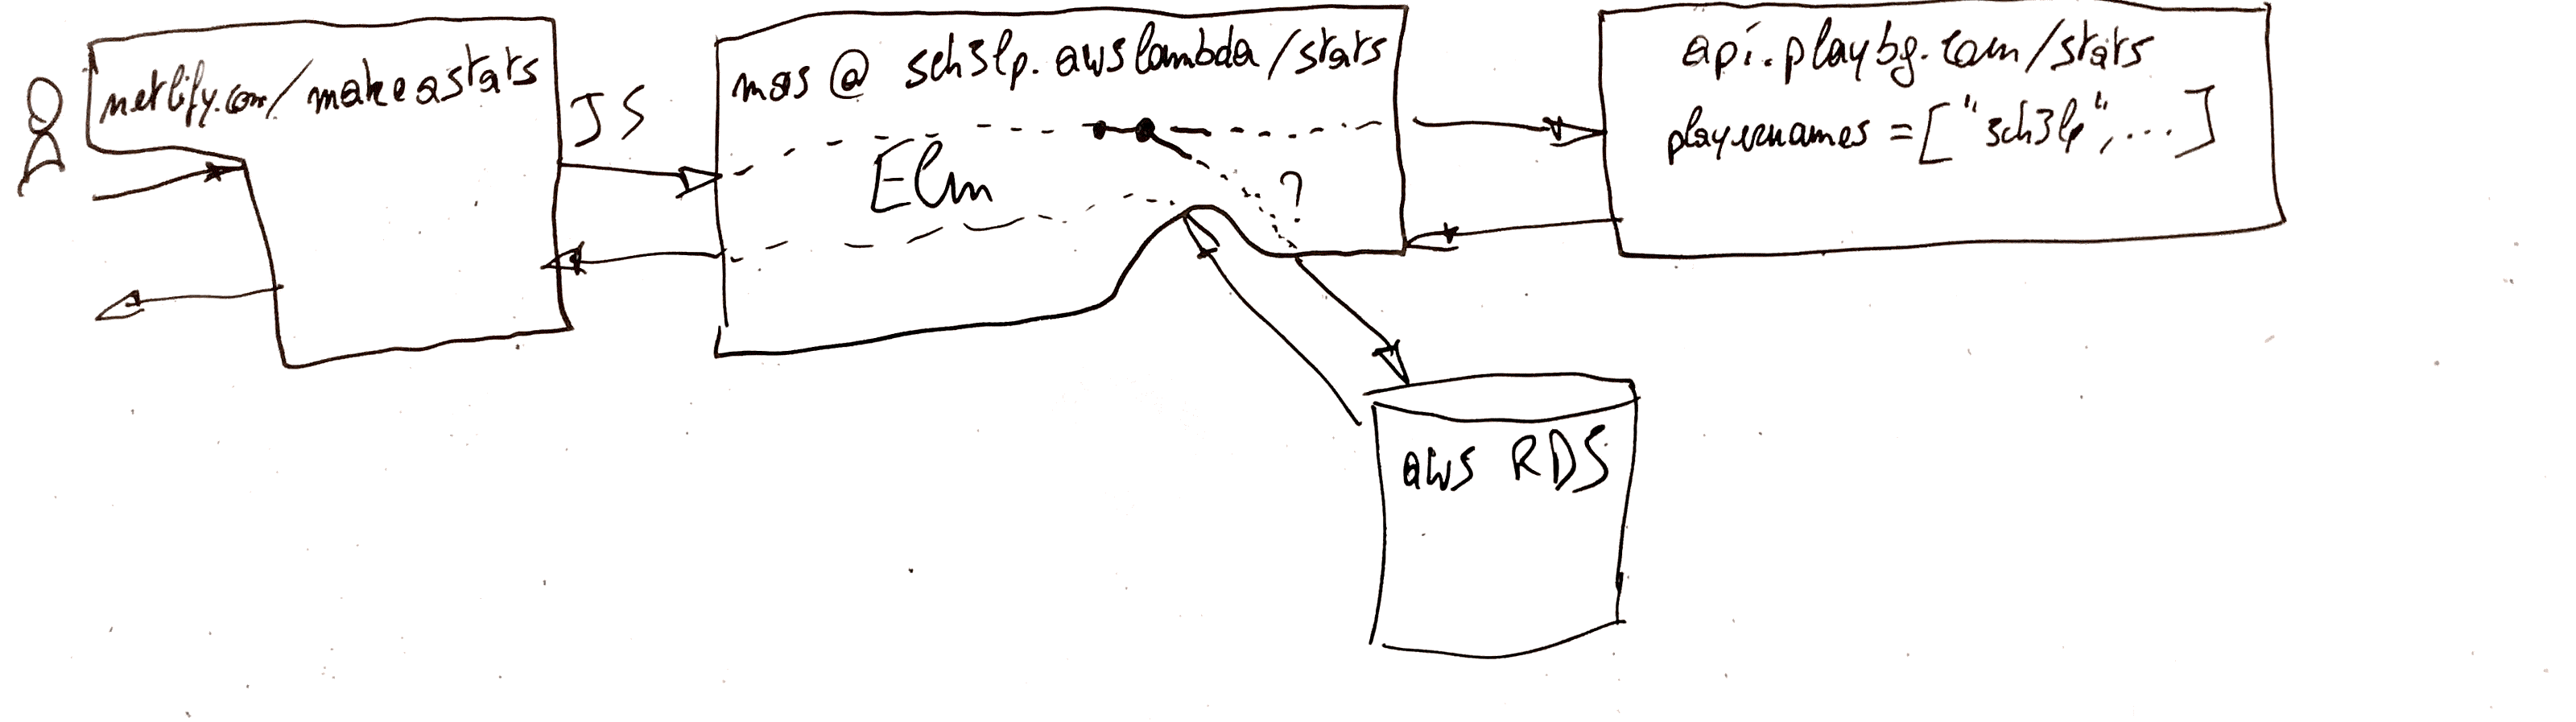 netlify.com/makeastats
JS
mas @ sch3lp.awslambda/stats
Elm
?
api.playbg.com/stats
playernames = ["sch3lp", ...]
aws RDS